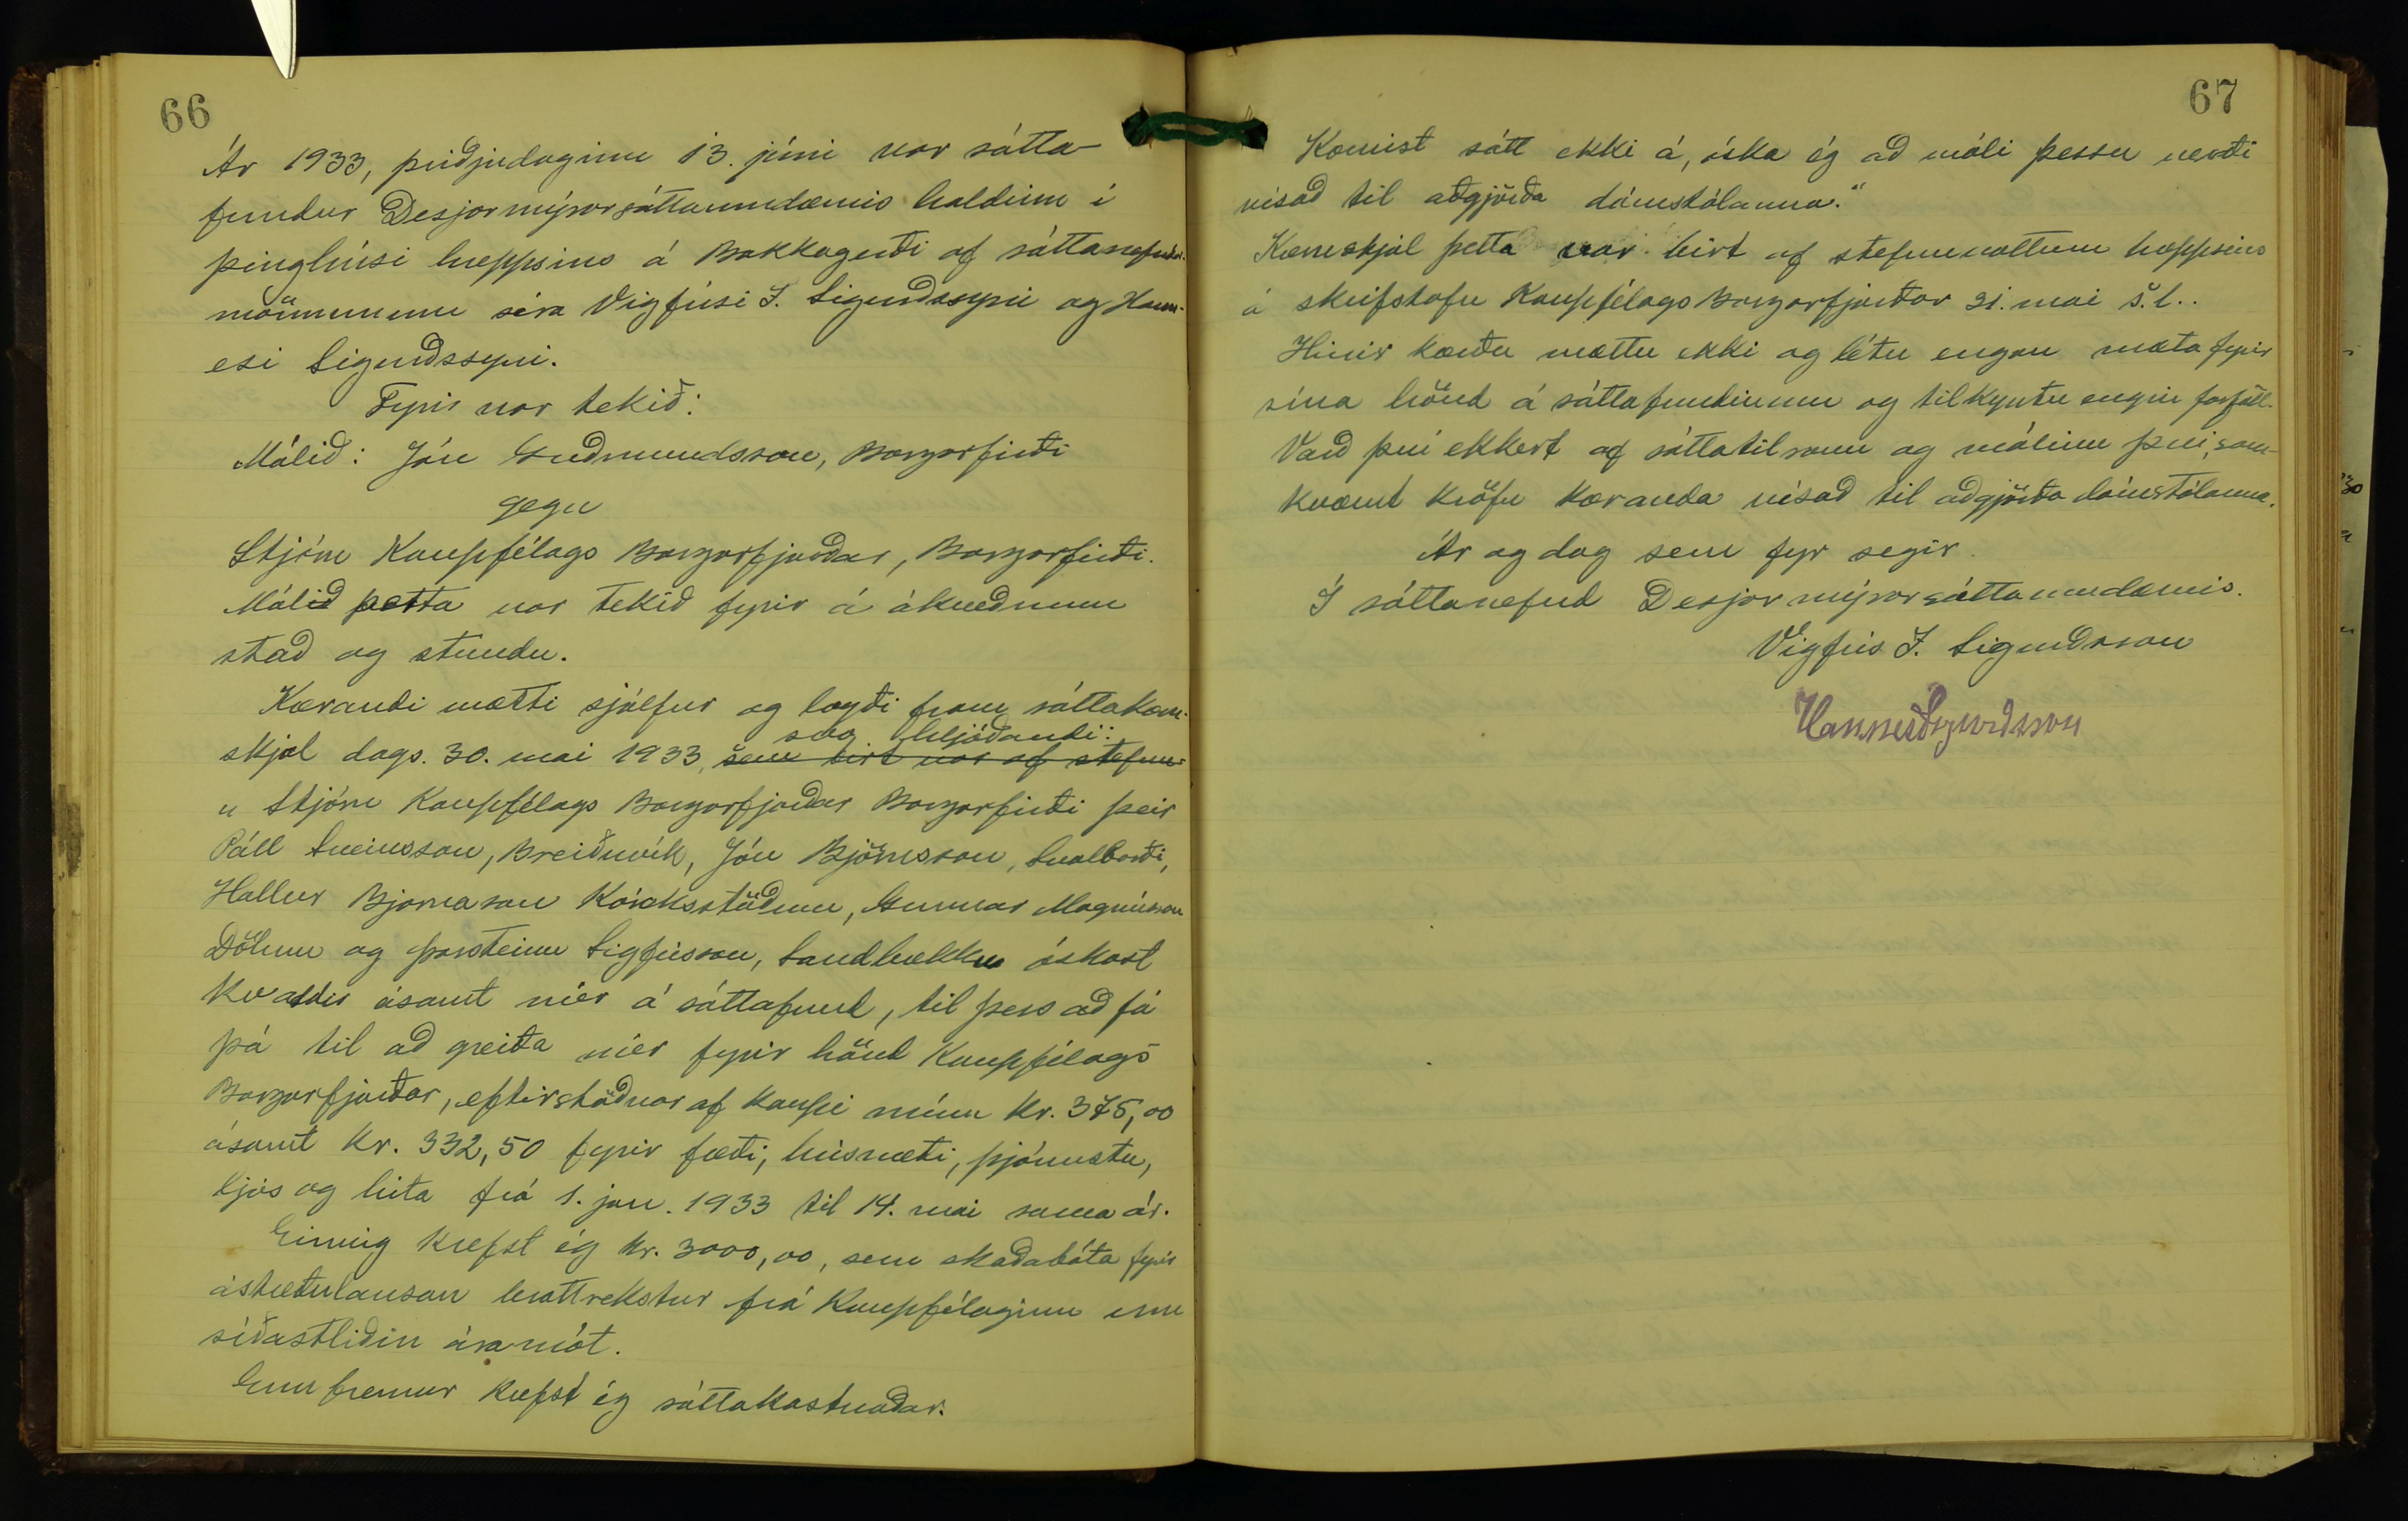 66
Ár 1933, þriðjudaginn 13. júní var sátta-
fundur Desjarmýrarsáttaumdæmis haldinn í
þinghúsi hreppsins á Bakkagerði af sáttanefndar-
mönnunum séra Vigfúsi I. Sigurðssyni og Hann-
esi Sigurðssyni.
Fyrir var tekið:
Málið: Jón Guðmundsson, Borgarfirði
gegn
Stjórn Kaupfélags Borgarfjarðar, Borgarfirði.
Málið þetta var tekið fyrir á ákveðnum
stað og stundu.
Kærandi mætti sjálfur og lagði fram sáttakæru-
svo hljóðandi:
skjal dags. 30. maí 1933, sem birt var af stefnu-
„ Stjórn Kaupfélags Borgarfjarðar Borgarfirði þeir
Páll Sveinsson, Breiðuvík, Jón Björnsson, Svalbarði,
Hallur Bjarnason Kóreksstöðum, Gunnar Magnússon
Dölum og Þorsteinn Sigfússon, Sandbrekku óskast
kvaddir ásamt mér á sáttafund, til þess að fá
þá til að greiða mér fyrir hönd Kaupfélags
Borgarfjarðar, eftirstöðvar af kaupi mínu kr. 375,00
ásamt kr. 332,50 fyrir fæði, húsnæði, þjónustu,
ljós og hita frá 1. jan. 1933 til 14. maí sama ár.
Einnig krefst ég kr. 3000,00, sem skaðabóta fyrir
ástæðulausan brottrekstur frá Kaupfélaginu um
síðastliðin áramót.
Enn fremur krefst ég sáttakostnaðar.
67
Komist sátt ekki á, óska ég að máli þessu verði
vísað til aðgjörða dómstólanna.“
Kæruskjal þetta var birt af stefnuvottum hreppsins
á skrifstofu Kaupfélags Borgarfjarðar 31. maí s.l..
Hinir kærðu mættu ekki og létu engan mæta fyrir
sína hönd á sáttafundinum og tilkyntu engin forföll.
Varð því ekkert af sáttatilraun og málinu því, sam-
kvæmt kröfu kæranda vísað til aðgjörða dómstólanna.
Ár og dag sem fyr segir.
Í sáttanefnd Desjarmýrarsáttaumdæmis.
Vigfús I. Sigurðsson
Hannes Sigurdsson